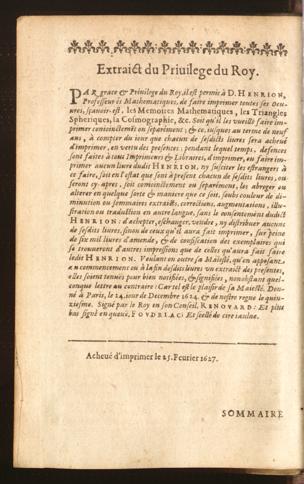 Extraict du Priuilege du Roy.
PAR grace & Priuilege du Roy, il est permis à D. HENRION,
Professeur és Mathematiques, de faire imprimer toutes ses Oeu-
ures, sçauoir est, les Memoires Mathematiques, les Triangles
Spheriques, la Cosmographie, &c. Soit qu'il les vueille faire im-
primer conioinctemẽt ou separement; & ce, iusques au terme de neuf
ans, à compter du iour que chacun de sesdicts liures sera acheué
d'imprimer, en vertu des presentes: pendant lequel temps, defences
sont faites à tous Imprimeurs & Libraires, d'imprimer, ou faire im-
primer aucun liure dudit HENRION, ny iceux les estrangers à
ce faire, soit en l'estat que sont à present chacun de sesdits liures, ou
seront cy-apres, soit conioinctement ou separement, les abreger ou
alterer en quelque sorte & maniere que ce soit, soubs couleur de di-
minution ou sommaires extraicts, corrections, augmentations, illu-
stration ou traduction en autre langue, sans le consentement dudict
HENRION: d'achepter, eschanger, vendre, ny distribuer aucuns
de sesdits liures, sinon de ceux qu'il aura fait imprimer, sur peine
de six mil liures d'amende, & de confiscation des exemplaires qui
se trouueront d'autres impressions que de celles qu'aura fait faire
ledit HENRION. Voulant en outre sa Maiesté, qu'en apposant
au commencement ou à la fin desdits liures vn extraict des presentes,
elles soient tenuës pour bien notifiées, & signifiées, nonobstant quel-
conque lettre au contraire: Car tel est le plaisir de sa Maiesté. Don-
né à Paris, le 24. iour de Decembre 1624. & de nostre regne le quin-
ziesme. Signé par le Roy en son Conseil, RENOVARD. Et plus
bas signé en queuë, FOVDRIAC: Et seellé de cire iaulne.
Acheué d'imprimer le 25. Feurier 1627.
SOMMAIRE